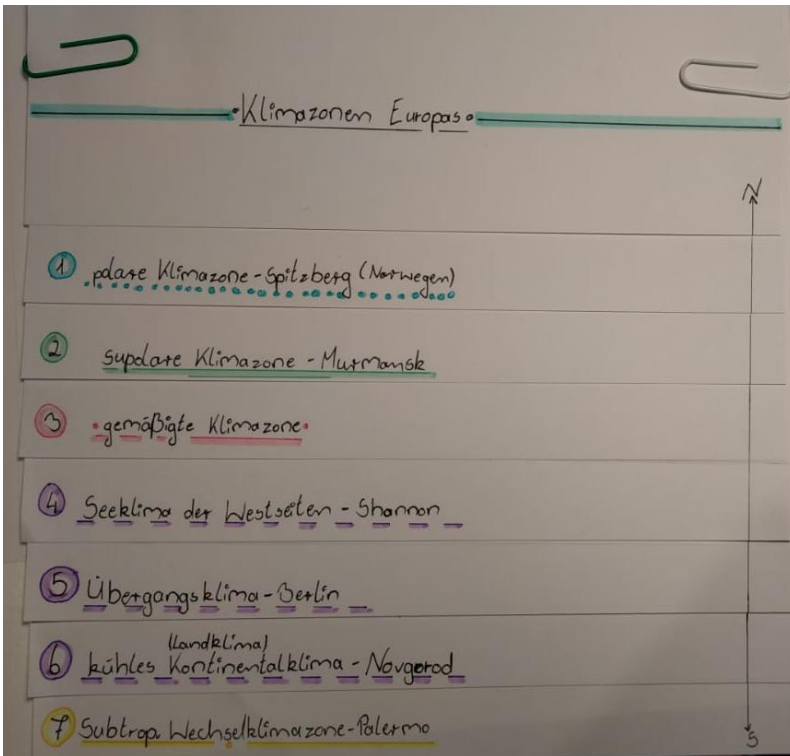 • Klimazonen Europas •
N
① polare Klimazone - Spitzberg (Norwegen)
② Supolare Klimazone - Murmansk
③ • gemäßigte Klimazone •
④ Seeklima der Westseiten - Shannon
⑤ Übergangsklima - Berlin
(Landklima)
⑥ kühles Kontinentalklima - Novgorod
⑦ Subtrop. Wechselklimazone - Palermo
S